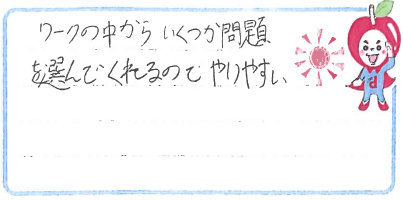 ワークの中から いくつか問題
を選んでくれるので やりやすい